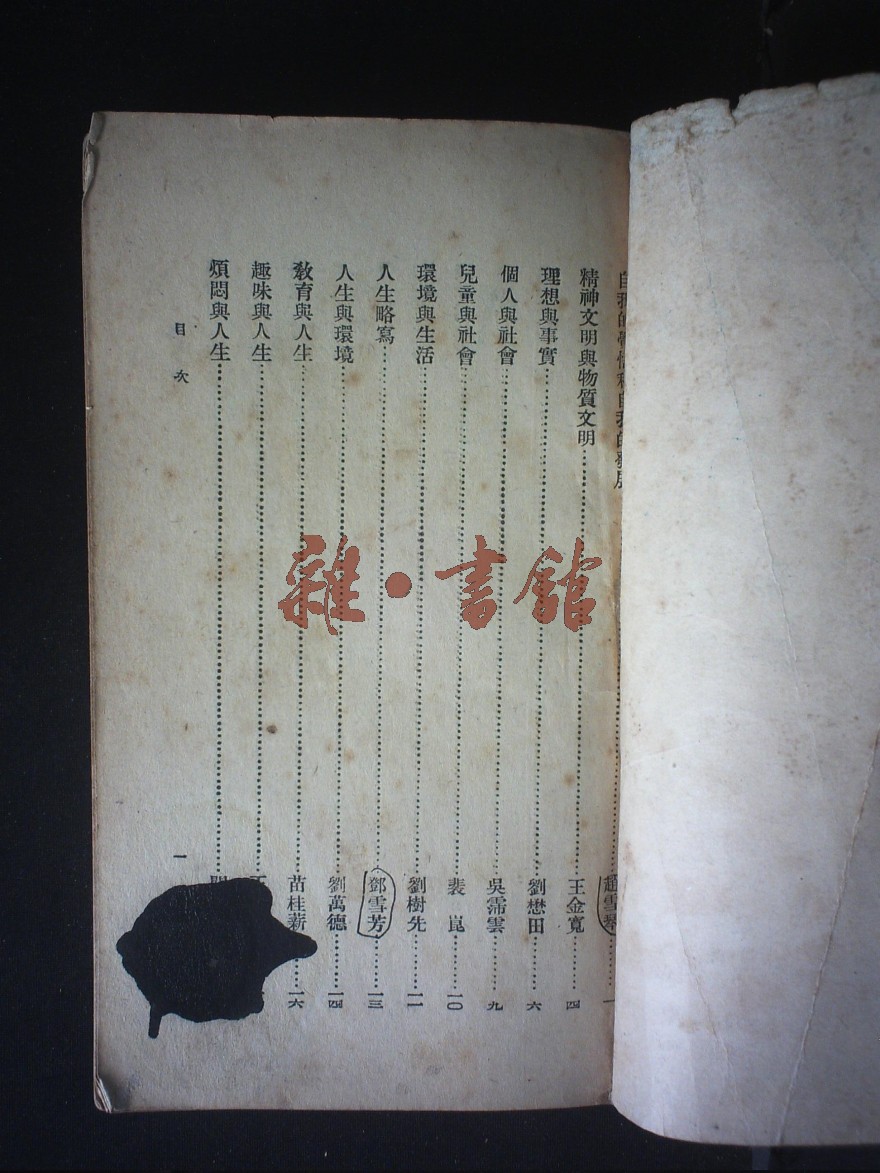 自我的覺悟和自我的發展……趙雪琴……一
精神文明與物質文明……王金寬……四
理想與事實……劉懋田……六
個人與社會……吳霈雲……九
兒童與社會……裴崑……一〇
環境與生活……劉樹先……一一
人生略寫……鄧雪芳……一三
人生與環境……劉萬德……一四
教育與人生……苗桂薪……一六
趣味與人生……
煩悶與人生……
目次
一
雜·書館